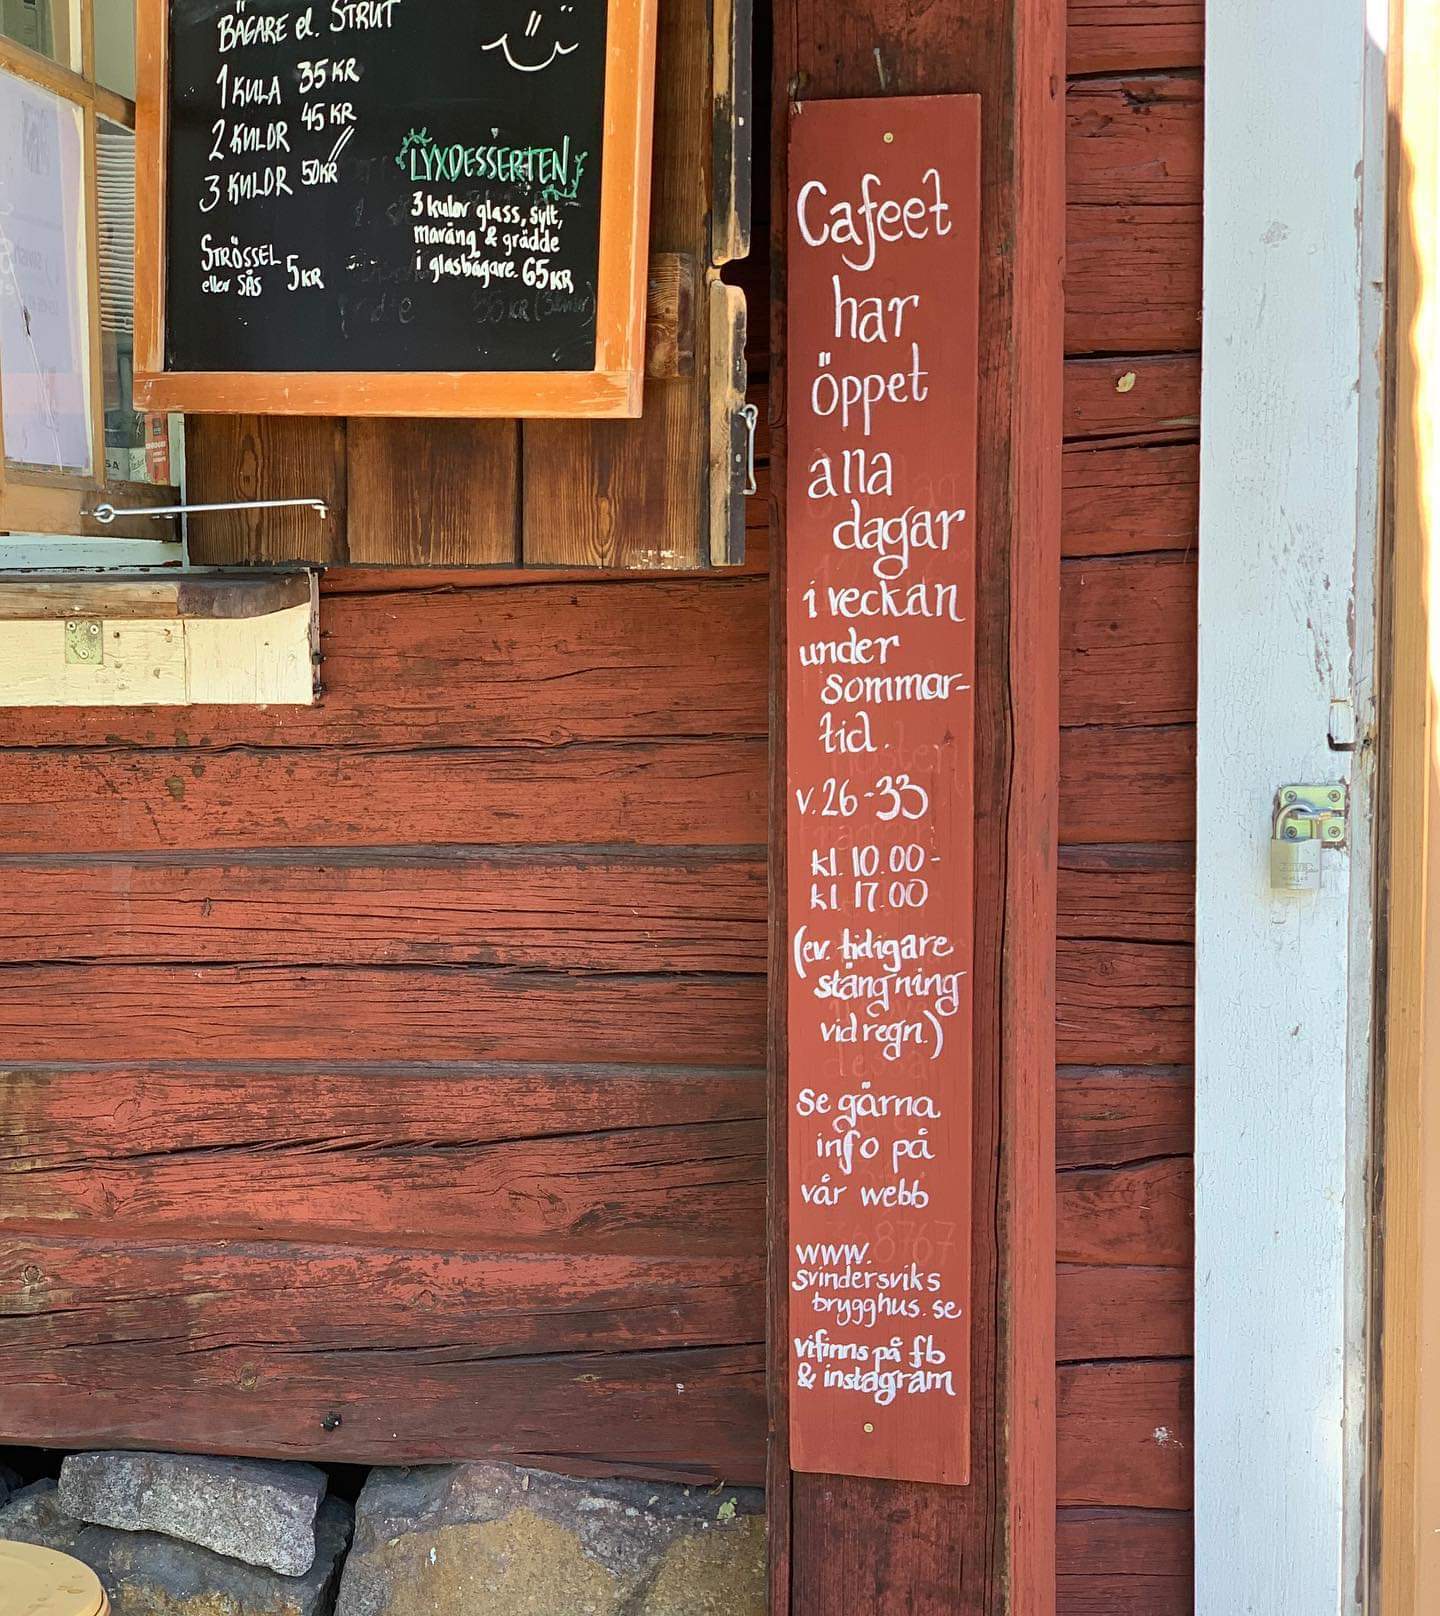 BÄGARE el. STRUT
1 KULA 35 KR
2 KULOR 45 KR
3 KULOR 50KR
STRÖSSEL
eller SÅS 5KR
LYXDESSERTEN
3 kulor glass, sylt,
maräng & grädde
i glasbägare. 65KR
Cafeet
har
öppet
alla
dagar
i veckan
under
sommar-
tid.
v. 26-33
kl. 10.00-
kl. 17.00
(ev. tidigare
stängning
vid regn.)
se gärna
info på
vår webb
www.
svindersviks
brygghus.se
vi finns på fb
& instagram